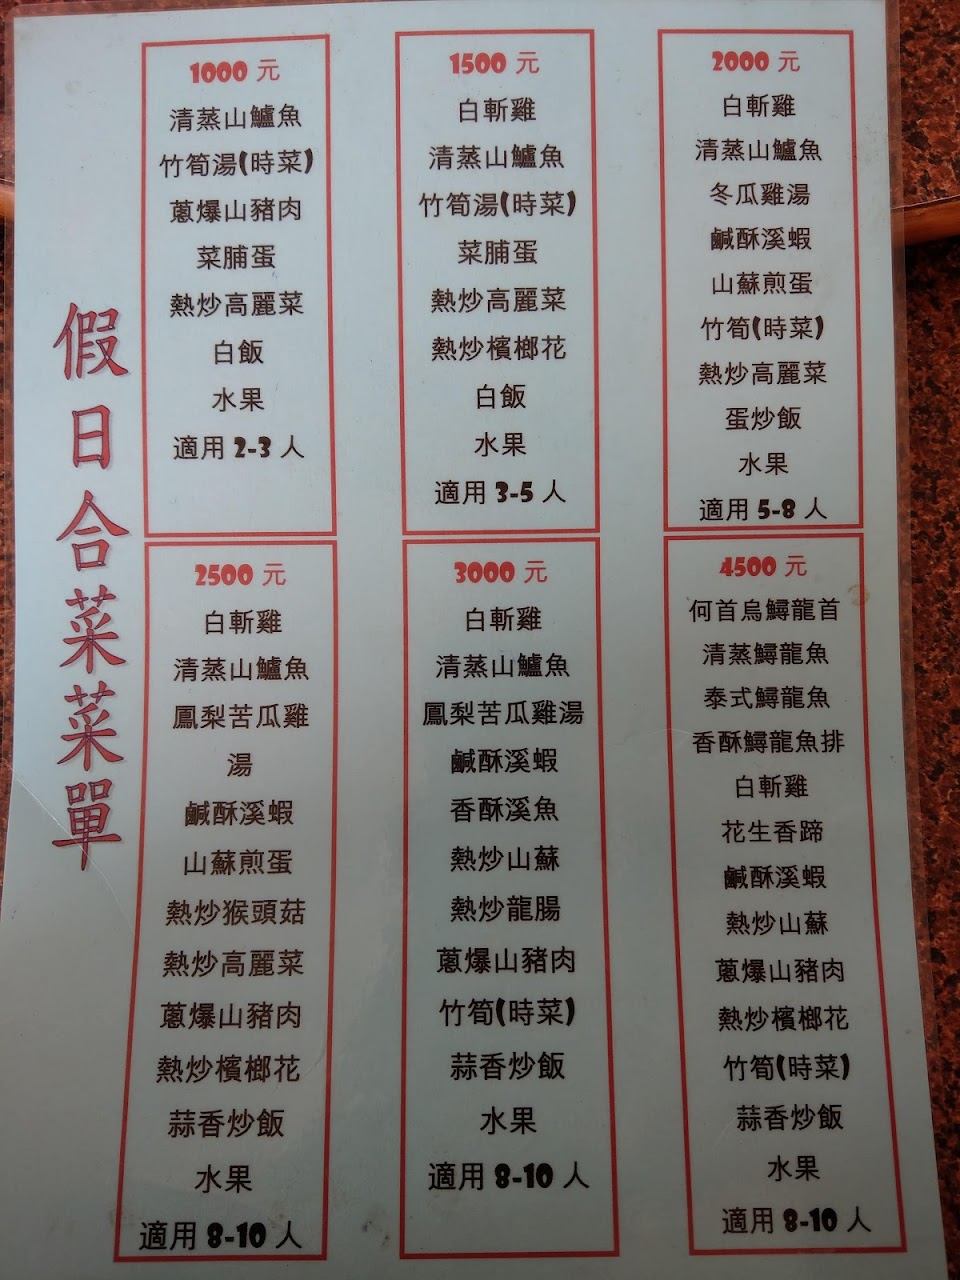 假日合菜菜單
1000 元
清蒸山鱸魚
竹筍湯(時菜)
蔥爆山豬肉
菜脯蛋
熱炒高麗菜
白飯
水果
適用 2-3 人
1500 元
白斬雞
清蒸山鱸魚
竹筍湯(時菜)
菜脯蛋
熱炒高麗菜
熱炒檳榔花
白飯
水果
適用 3-5 人
2000 元
白斬雞
清蒸山鱸魚
冬瓜雞湯
鹹酥溪蝦
山蘇煎蛋
竹筍(時菜)
熱炒高麗菜
蛋炒飯
水果
適用 5-8 人
2500 元
白斬雞
清蒸山鱸魚
鳳梨苦瓜雞
湯
鹹酥溪蝦
山蘇煎蛋
熱炒猴頭菇
熱炒高麗菜
蔥爆山豬肉
熱炒檳榔花
蒜香炒飯
水果
適用 8-10 人
3000 元
白斬雞
清蒸山鱸魚
鳳梨苦瓜雞湯
鹹酥溪蝦
香酥溪魚
熱炒山蘇
熱炒龍腸
蔥爆山豬肉
竹筍(時菜)
蒜香炒飯
水果
適用 8-10 人
4500 元
何首烏鱘龍首
清蒸鱘龍魚
泰式鱘龍魚
香酥鱘龍魚排
白斬雞
花生香蹄
鹹酥溪蝦
熱炒山蘇
蔥爆山豬肉
熱炒檳榔花
竹筍(時菜)
蒜香炒飯
水果
適用 8-10 人